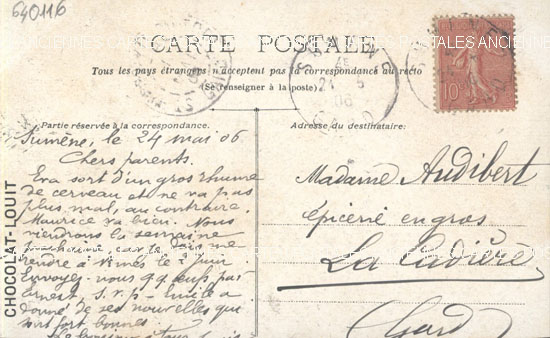 640116
CARTE POSTALE
Tous les pays étrangers n'acceptent pas la correspondance au recto
(Se renseigner à la poste).
Partie réservée à la correspondance.
Adresse du destinataire:
Sumène, le 24 mai 06
Chers parents.
Eva sort d'un gros rhume
de cerveau et ne va pas
plus mal, au contraire.
Maurice va bien. Nous
viendrons la semaine
prochaine car je dois me
rendre à Nîmes le 2 juin
Envoyez-nous qq. œufs par
Ernest, s.v.p. Emile a
donné de ses nouvelles qui
sont fort bonnes.
à tous
Madame Audibert
épicerie en gros
La
Gard
CHOCOLAT-LOUIT
10